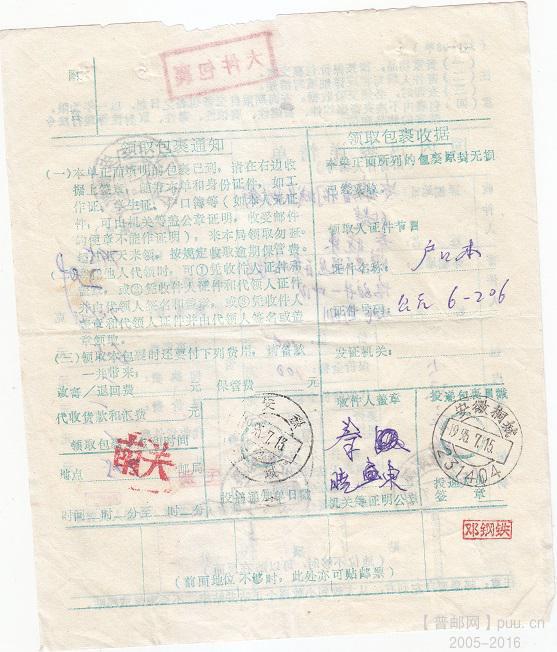 附
大件包裹
领取包裹通知
(一)本单正面所明的包裹已到,请在右边收
据上签章,随带本单和身份证件,如工
作证、学生证、户口簿等(如本人无证
件,可由机关等盖公章证明,收受邮件
的便章不能作证明),来本局领取勿延。
天来领,按规定收取逾期保管费。
他人代领时,可①凭收件人证件
或②凭收件人便章和代领人证件
并由代领人签名或盖章,或③凭收件人
便章和代领人证件并由代领人签名或盖
章领取。
(二)领取本包裹时还要付下列费用,请备款
一并带来:
改寄/退回费 元 保管费 元
代收货款和汇费 元
领取包裹 时间
地点 邮局
南关
时间 时 分至 时 分
领取包裹收据
本单正面所列的包裹原封无损
已经领取
领取人证件节目
证件名称: 户口本
证件号码: 6-206
发证机关:
投递通知单日戳
收件人签章
机关等证明公章
投递包裹日戳
安徽桐城
1995.7.15
231404
投递
签章
邓钢铁
(前面地位不够时,此处亦可贴邮票)
【普邮网】puu.cn
2005-2016